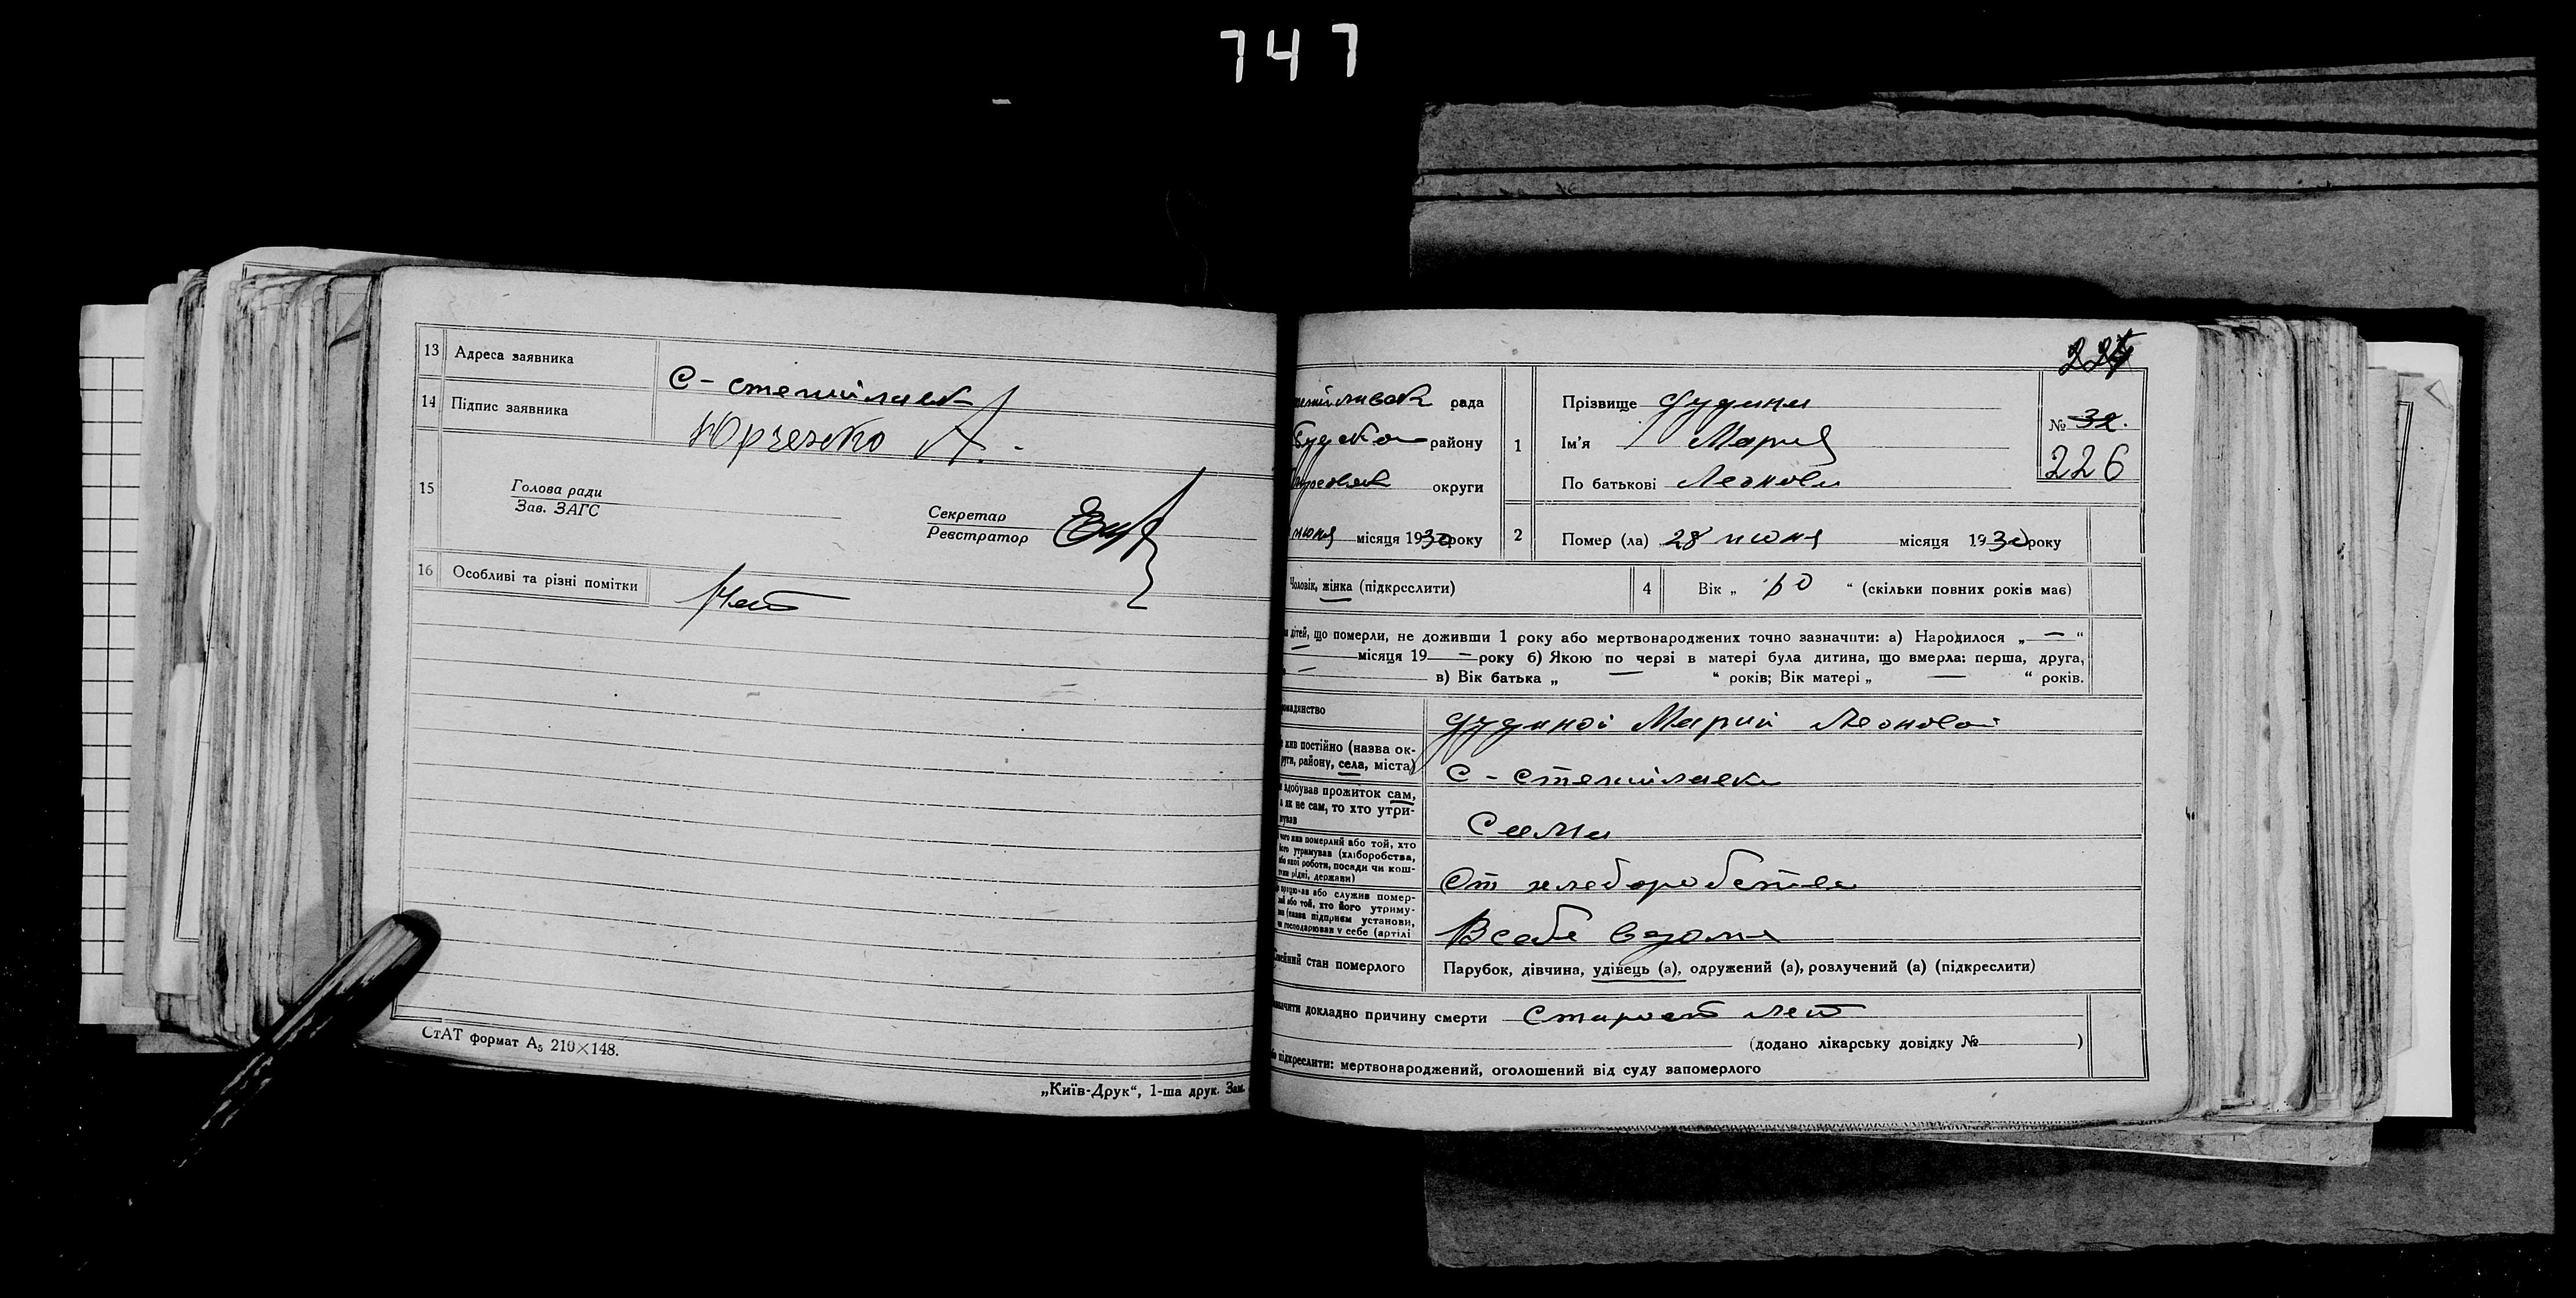 747
13 Адреса заявника
С-степийлаевк
14 Підпис заявника
Юрченко А.
15 Голова ради
Зав. ЗАГС
Секретар
Реєстратор
16 Особливі та різні помітки
Нет
СтАТ формат А₅ 210×148.
„Київ-Друк“, 1-ша друк. Зам.
рада
району
округи
июня місяця 1930 року
1 Прізвище Дудини
Ім’я Мария
По батькові Леонови
№ 32.
226
2 Помер (ла) 28 июня місяця 1930 року
Чоловік, жінка (підкреслити)
4 Вік „ “ (скільки повних років має)
дітей, що померли, не доживши 1 року або мертвонароджених точно зазначити: а) Народилося „ — “
— місяця 19 — року б) Якою по черзі в матері була дитина, що вмерла: перша, друга,
— в) Вік батька „ — “ років; Вік матері „ — “ років.
Дудиной Марии Леоновой
жив постійно (назва ок-
руги, району, села, міста)
здобував прожиток сам,
а як не сам, то хто утри-
мував
Сама
чого жив померлий або той, хто
його утримував (хліборобства,
або якої роботи, посади чи кош-
рідні, держави)
От хлеборобства
або служив помер-
або той, хто його утриму-
(назва підприєм установи,
господарював у себе (артілі
В себе вдома
стан померлого
Парубок, дівчина, удівець (а), одружений (а), розлучений (а) (підкреслити)
докладно причину смерти Старост лет
(додано лікарську довідку № )
підкреслити: мертвонароджений, оголошений від суду запомерлого